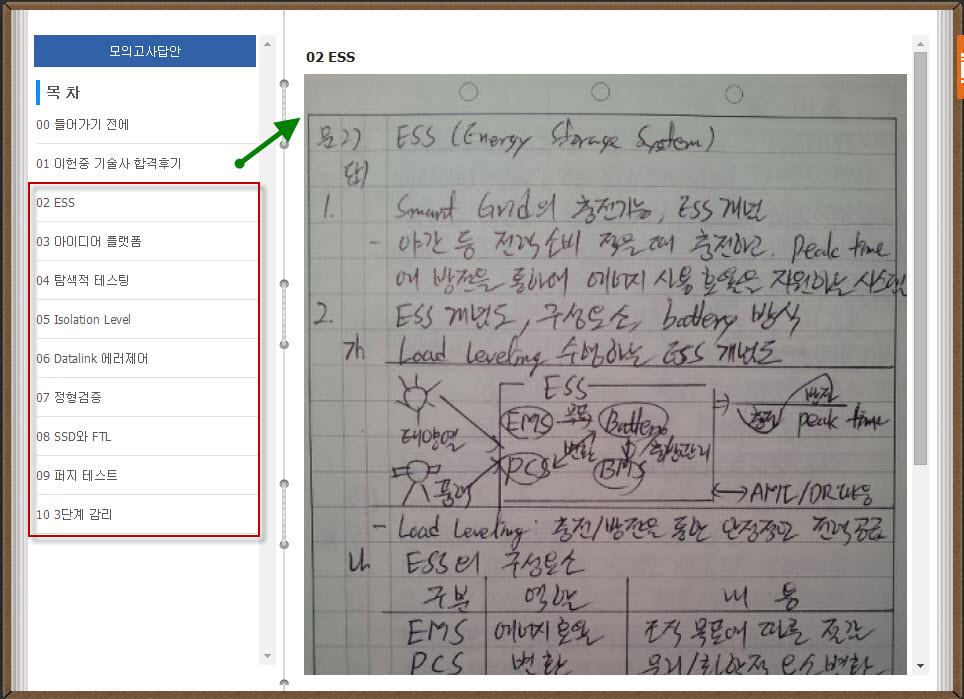 모의고사답안
목 차
00 들어가기 전에
01 이헌중 기술사 합격후기
02 ESS
03 아이디어 플랫폼
04 탐색적 테스팅
05 Isolation Level
06 Datalink 에러제어
07 정형검증
08 SSD와 FTL
09 퍼지 테스트
10 3단계 감리
02 ESS
문2) ESS (Energy Storage System)
답)
1. Smart Grid의 충전가능, ESS 개념
- 야간 등 전력소비 적을 때 충전하고, peak time
에 방전을 통하여 에너지 사용 효율을 지원하는 시스템
2. ESS 개념도, 구성요소, battery 방식
가 Load Leveling 수행하는 ESS 개념도
ESS
EMS 목표 Battery
태양열
변환
PCS BMS
풍력
방전
충전 peak time
AMI/DR
- Load Leveling: 충전/방전을 통한 안정적인 전력공급
나 ESS의 구성요소
구분 역할 내용
EMS 에너지효율 조직 목표에 따른 절감
PCS 변환